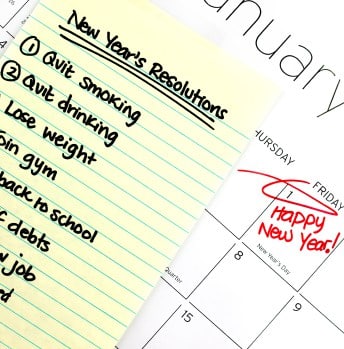 anuary
New Year's Resolutions
① Quit smoking
② Quit drinking
Lose weight
gym
back to school
debts
job
THURSDAY
FRIDAY
1
Happy
New Year!
New Year's Day
8
9
15